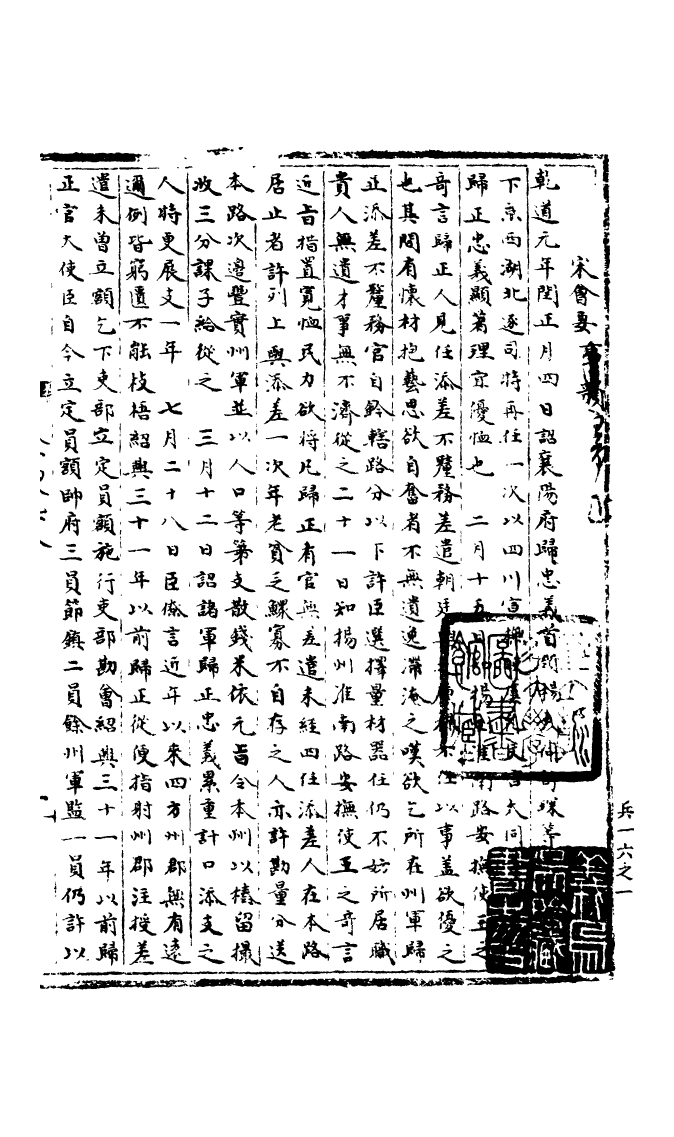 宋會要
乾道元年閏正月四日詔襄陽府歸忠義首
下京西湖北逐司時再任一次以四川宣
言大同
歸正忠義顯著理宜優恤也　二月十五日知揚
淮南路安撫使王之
奇言歸正人見任添差不釐務差遣朝廷
以事蓋欲優之
也其間有懷材抱藝思欲自奮者不無遺逸滯淹之嘆欲乞所在州軍歸
正添差不釐務官自鈐轄路分以下許臣選擇量材器任仍不妨所居職
貴人無遺才事無不濟從之二十一日知揚州淮南路安撫使王之奇言
近旨措置寬恤民力欲將凡歸正有官無差遣未經四任添差人在本路
居止者許列上與添差一次年老貧乏鰥寡不自存之人亦許勘量分送
本路次邊豐實州軍並以人口等第支散錢米依元旨令本州以樁留撮
收三分課子給從之　三月十二日詔諸軍歸正忠義累重計口添支之
人時更展支一年　七月二十八日臣僚言近年以來四方州郡無有遠
邇例皆窮匱不能枝梧紹興三十一年以前歸正從便指射州郡注授差
遣未曾立額乞下吏部立定員額施行吏部勘會紹興三十一年以前歸
正官大使臣自今立定員額帥府三員節鎮二員餘州軍監一員仍許以
兵一六之一